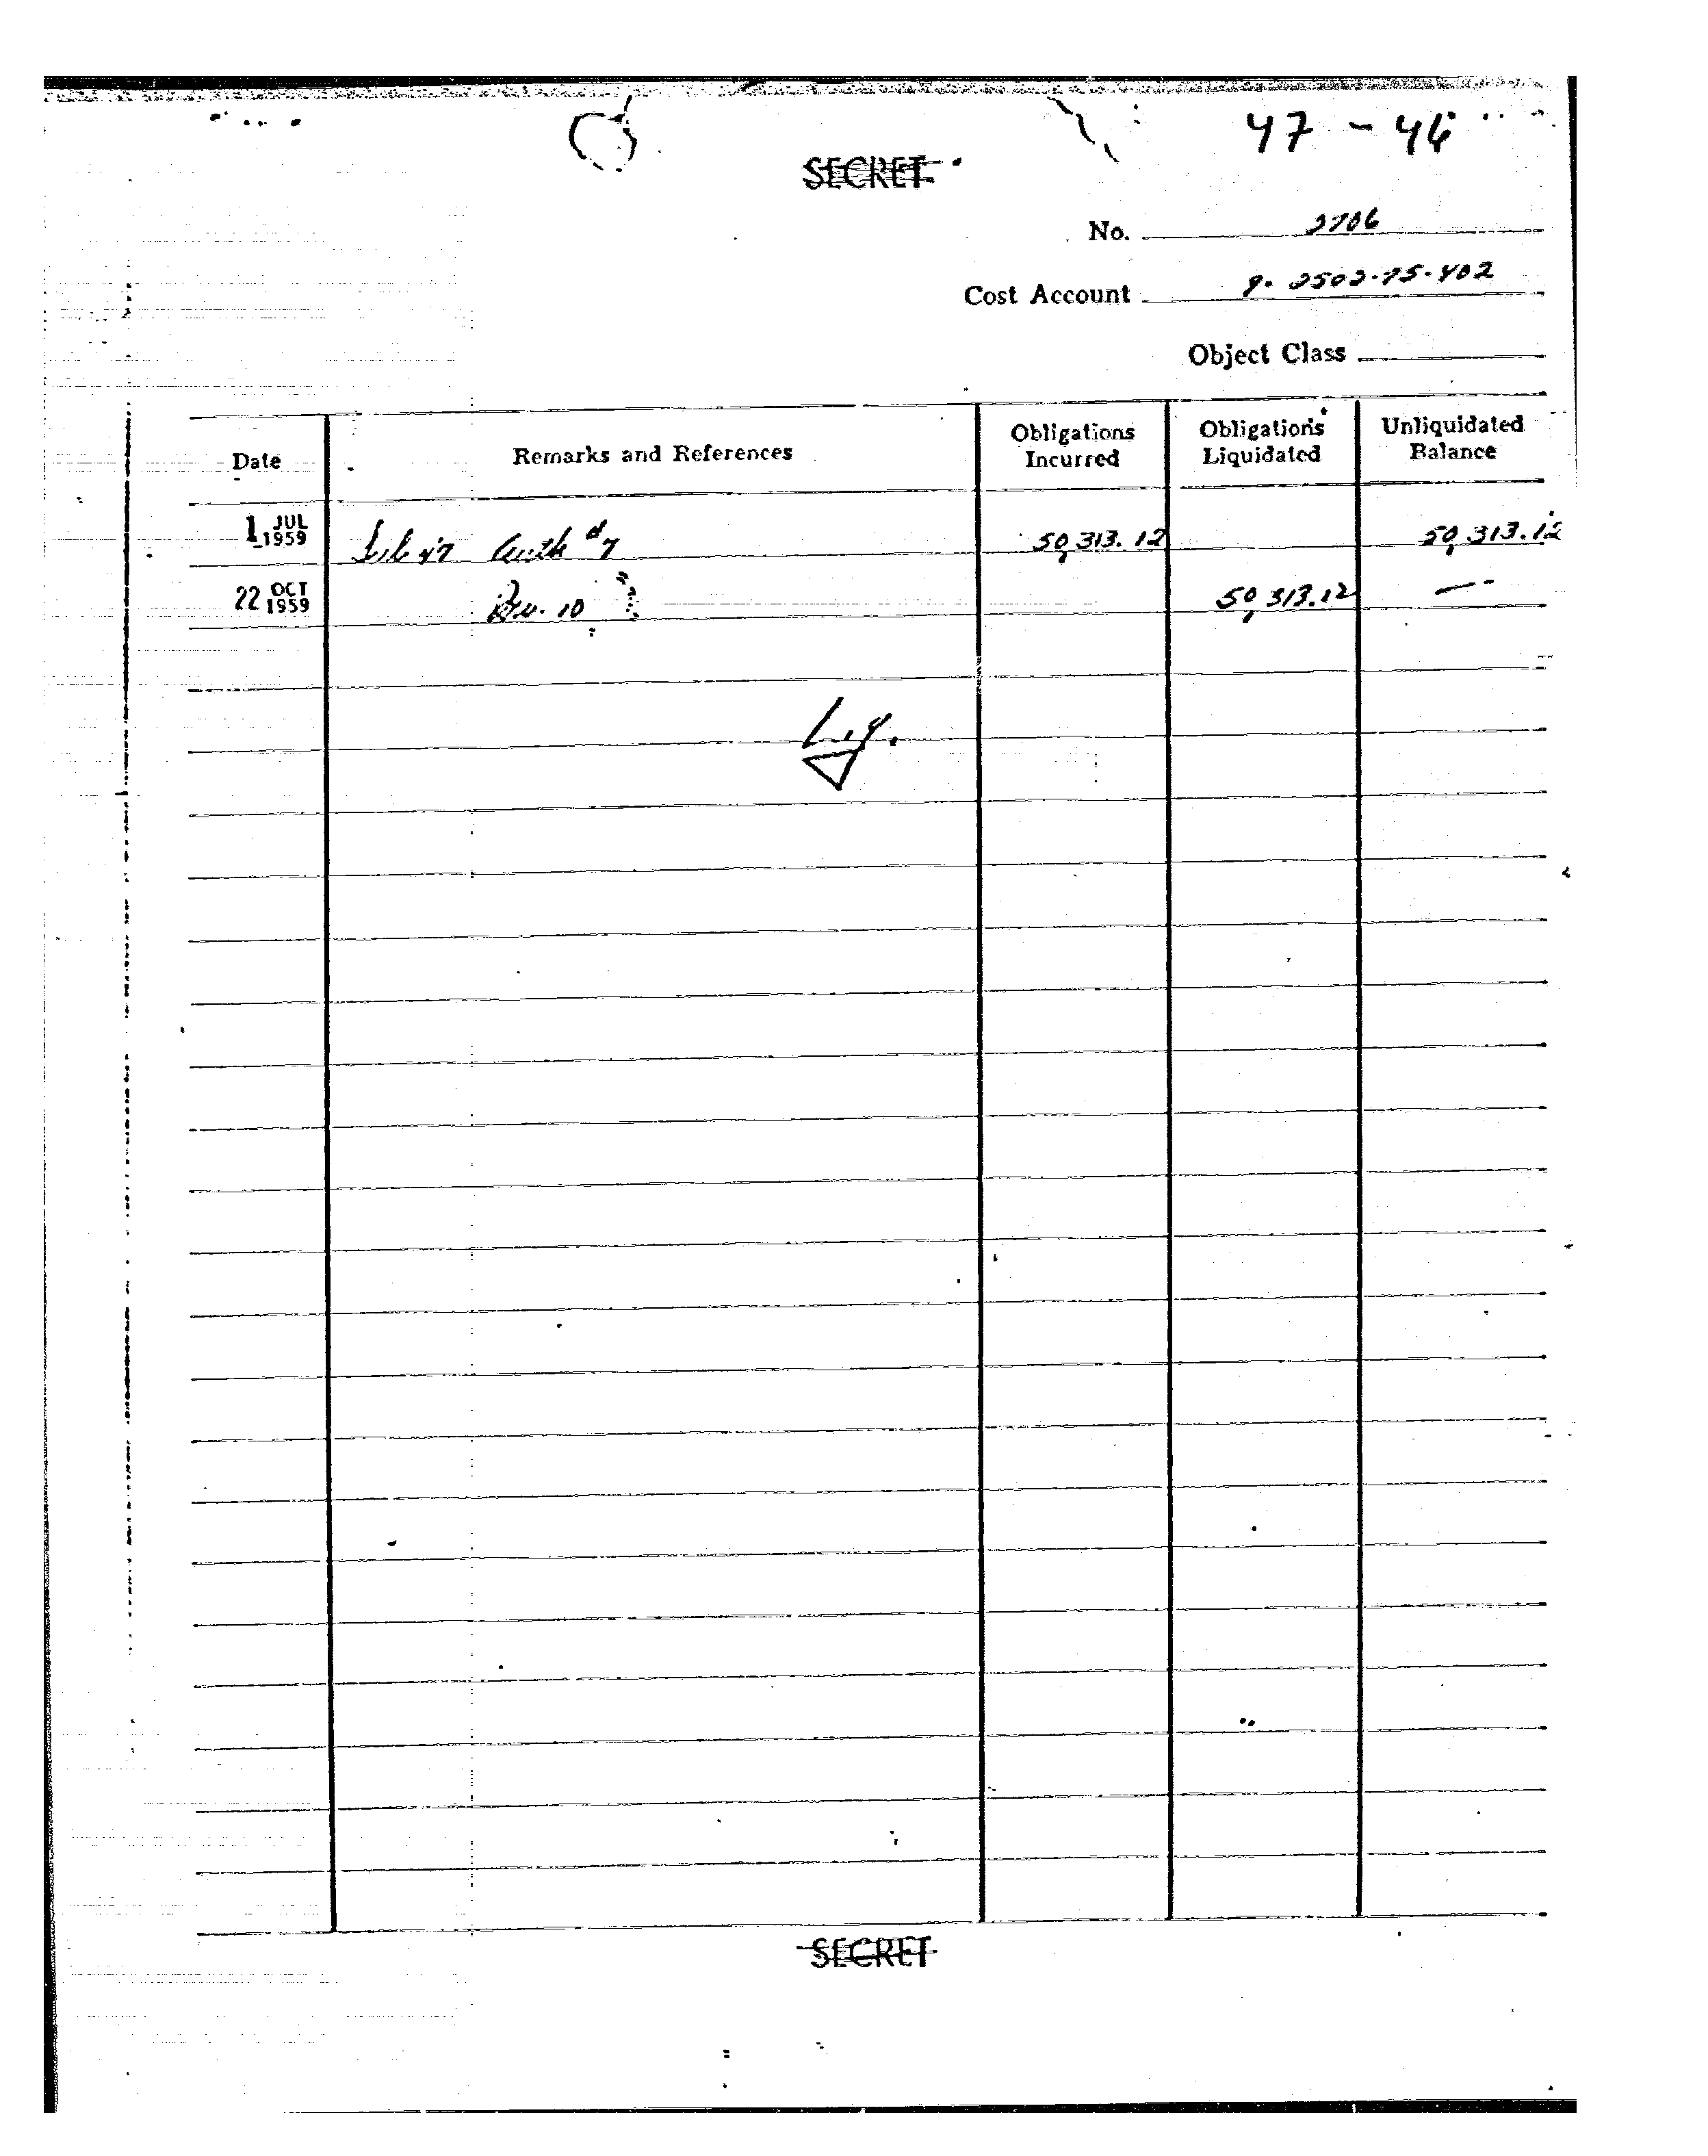 47 - 46
SECRET
No. 2706
Cost Account 9-2502-75-402
Object Class
Date Remarks and References Obligations Incurred Obligations Liquidated Unliquidated Balance
1 JUL 1959 Auth #7 50,313.12 50,313.12
22 OCT 1959 10 50,313.12 —
Liq.
SECRET